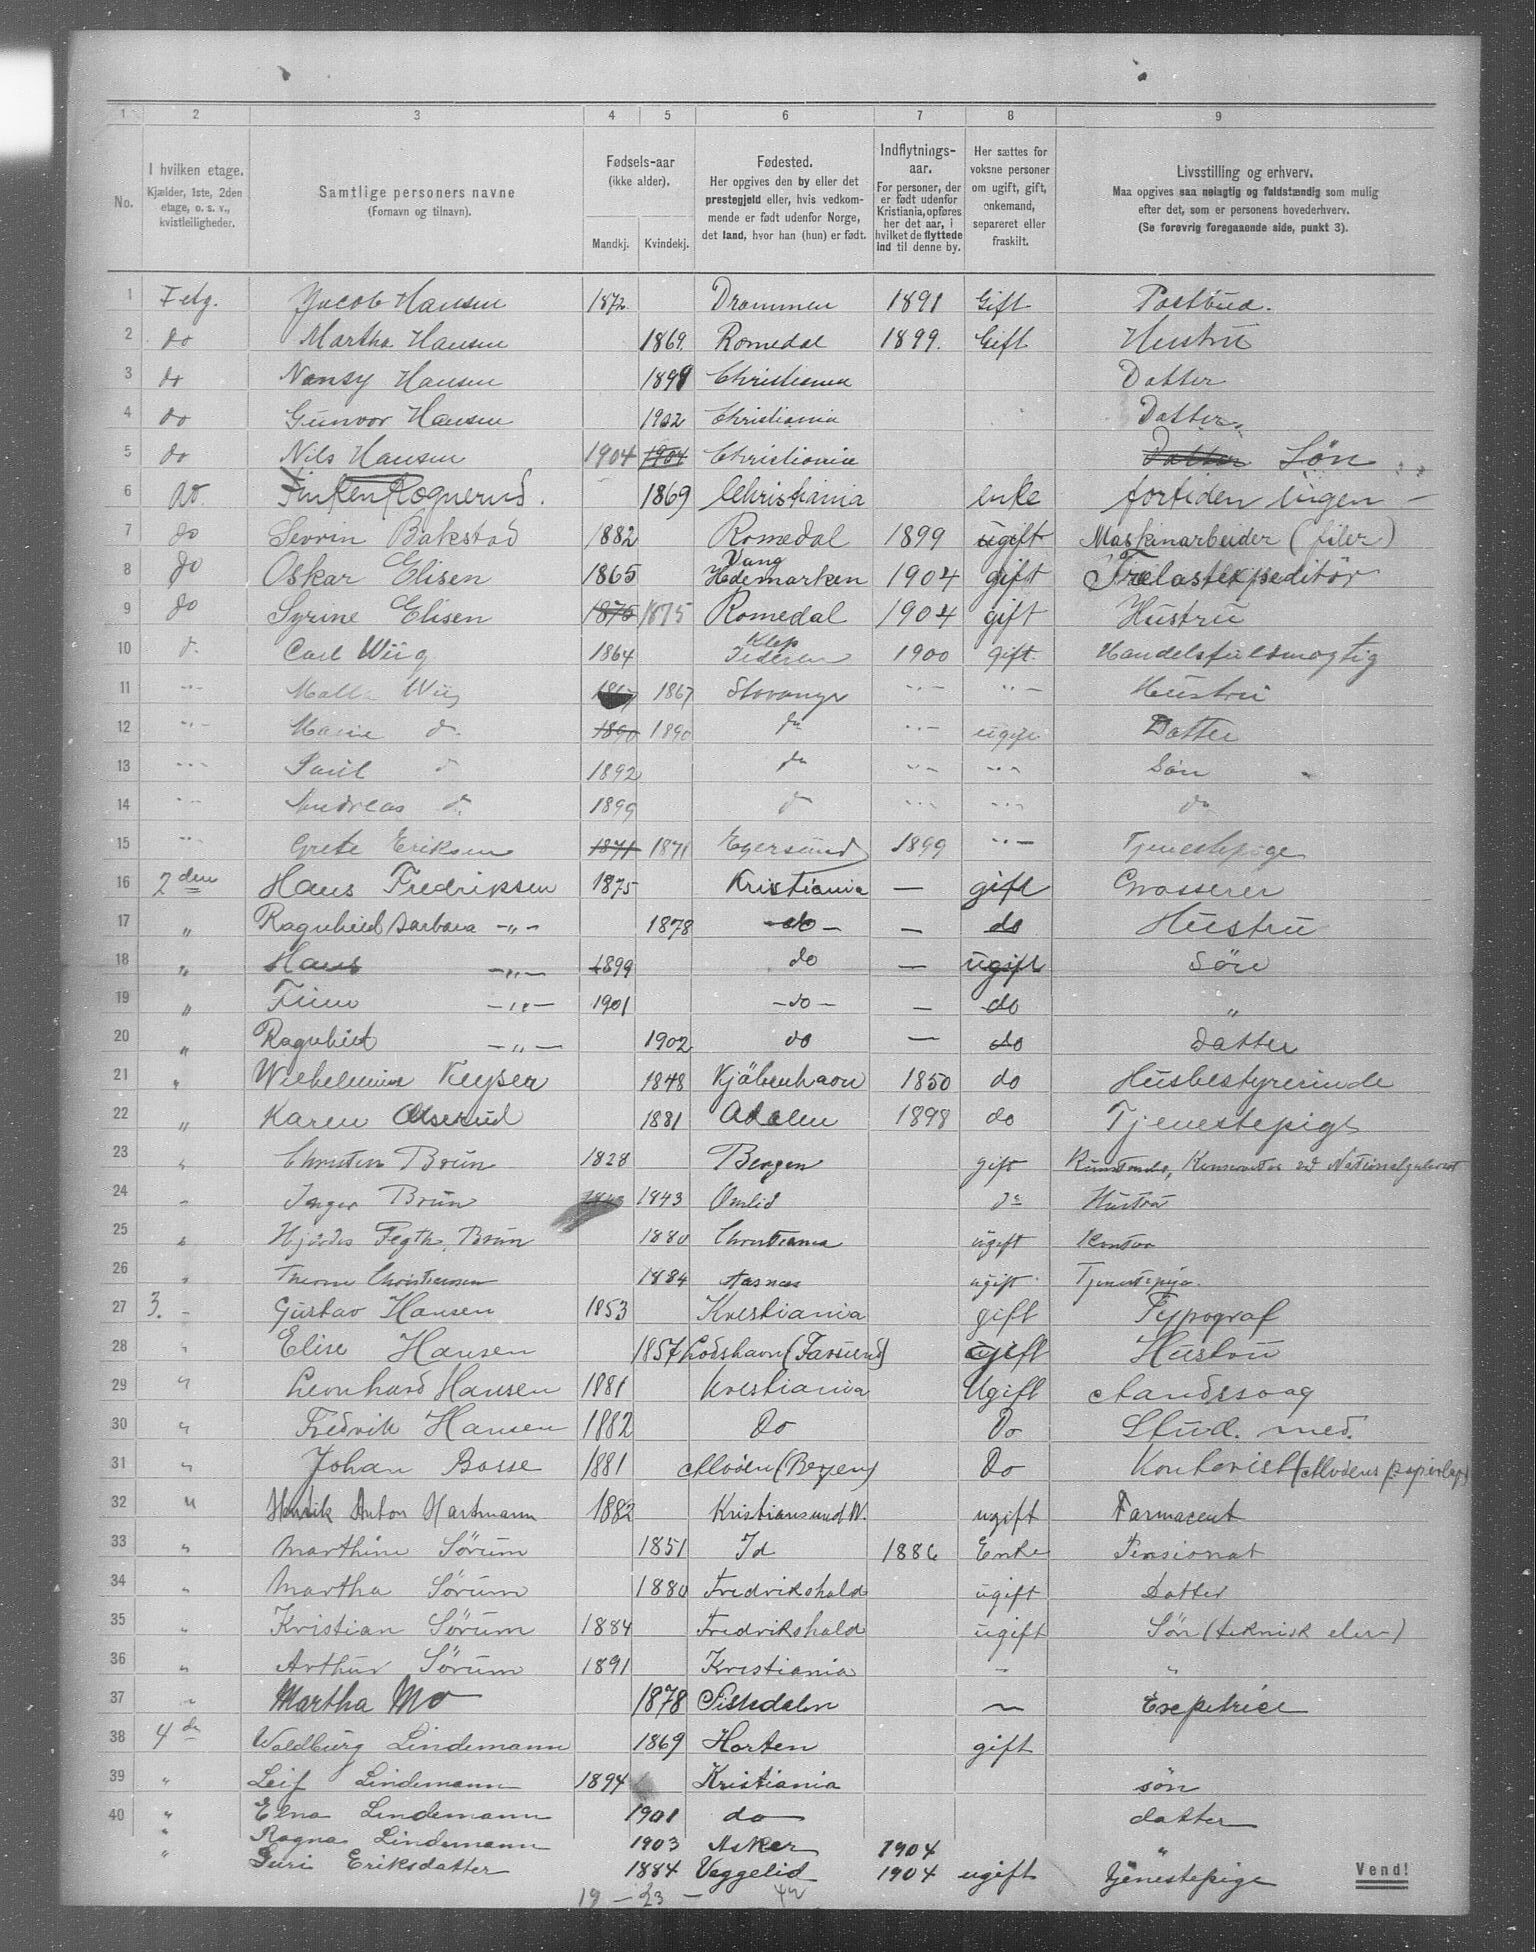 1 2 3 4 5 6 7 8 9
No. I hvilken etage. Kjælder, 1ste, 2den etage, o. s. v., kvistleiligheder. Samtlige personers navne (Fornavn og tilnavn). Fødsels-aar (ikke alder). Mandkj. Kvindekj. Fødested. Her opgives den by eller det prestegjeld eller, hvis vedkommende er født udenfor Norge, det land, hvor han (hun) er født. Indflytnings-aar. For personer, der er født udenfor Kristiania, opføres her det aar, i hvilket de flyttede ind til denne by. Her sættes for voksne personer om ugift, gift, enkemand, separeret eller fraskilt. Livsstilling og erhverv. Maa opgives saa nøiagtig og fuldstændig som mulig efter det, som er personens hovederhverv. (Se forøvrig foregaaende side, punkt 3).
1 I etg. Jacob Hansen 1872 Drammen 1891 Gift Postbud.
2 do Martha Hansen 1869. Romedal 1899. Gift Hustru
3 do Nansy Hansen 1899 Christiania Datter
4 do Gunvor Hansen 1902 Christiania Datter
5 do Nils Hansen 1904 1904 Christiania Datter Søn
6 do. Rognerud. 1869 Christiania enke fortiden ingen
7 do Sevrin Bakstad 1882 Romedal 1899 ugift Maskinarbeider (filer)
8 do Oskar Elisen 1865 Vang Hedemarken 1904 gift Trælastexpeditør
9 do Syrine Elisen 1875 1875 Romedal 1904 gift Hustru
10 d. Carl Wiig 1864 Klep Jederen 1900 gift. Handelsfuldmægtig
11 " Wiig 1867 1867 Stavanger " " Hustru
12 " Marie d. 1890 1890 do " ugift Datter
13 " Paul d 1892 do " " Søn
14 " Andreas d. 1899 d " " do
15 " Grete Eriksen 1871 1871 Egersund 1899 " Tjenestepige
16 2den Hans Fredriksen 1875 Kristiania — gift Grosserer
17 " Ragnhild Barbara -"- 1878 do — do Hustru
18 " Hans -"- 1899 do — ugift Søn
19 " Finn -"- 1901 -do- — do "
20 " Ragnhild -"- 1902 do — do Datter
21 " Wilhelmine Keyser 1848 Kjøbenhavn 1850 do Husbestyrerinde
22 " Karen Alserud 1881 Adalen 1898 do Tjenestepige
23 " Christen Brun 1828 Bergen gift Kunstmaler, Konservator ved Nationalgaleriet
24 " Inger Brun 1843 1843 Omlid do Hustru
25 " Hjørdis Fegth Brun 1880 Christiania ugift Kontor
26 " Christiansen 1884 Aasnæs ugift Tjenestepige.
27 3. - Gustav Hansen 1853 Kristiania gift Typograf
28 " Elise Hansen 1857 Loshavn (Farsund) gift Hustru
29 " Leonhard Hansen 1881 Kristiania Ugift Aandssvag
30 " Fredrik Hansen 1882 Do Do Stud. med.
31 " Johan Bosse 1881 Alvøen (Bergen) Do Kontorist (Alvøens papirlager)
32 " Henrik Anton Hartmann 1882 Kristiansund N. ugift Farmaceut
33 " Marthine Sørum 1851 Id 1886 Enke Pensionat
34 " Martha Sørum 1880 Fredrikshald ugift Datter
35 " Kristian Sørum 1884 Fredrikshald ugift Søn (teknisk elev)
36 " Arthur Sørum 1891 Kristiania - "
37 " Martha Mo 1878 Tistedalen — Expeditrice
38 4de Waldburg Lindemann 1869 Horten gift
39 " Leif Lindemann 1894 Kristiania søn
40 " Elna Lindemann 1901 do datter
" Ragna Lindemann 1903 Asker 1904 "
" Guri Eriksdatter 1884 Veggelid 1904 ugift tjenestepige
Vend!
19 - 23 - 42